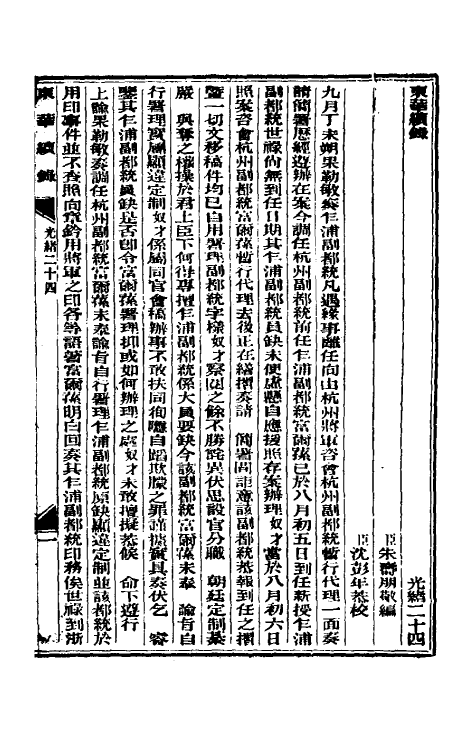 東華續錄
光緒二十四
臣朱壽朋敬編
臣沈彭年恭校
九月丁未朔果勒敏奏乍浦副都統凡遇緣事離任向由杭州將軍咨會杭州副都統暫行代理一面奏
請簡署歷經遵辦在案今調任杭州副都統前任乍浦副都統富爾蓀已於八月初五日到任新授乍浦
副都統世祿尙無到任日期其乍浦副都統員缺未便虛懸自應援照存案辦理奴才當於八月初六日
照案咨會杭州副都統富爾蓀暫行代理去後正在繕摺奏請 簡署間詎意該副都統恭報到任之摺
暨一切文移稿件均已自用署理副都統字樣奴才察閱之餘不勝詫異伏思設官分職 朝廷定制綦
嚴 與奪之權操於君上臣下何得專擅乍浦副都統係大員要缺今該副都統富爾蓀未奉 諭旨自
行署理實屬顯違定制奴才係屬同官會稿辦事不敢扶同徇隱自蹈欺朦之罪謹據實具奏伏乞 睿
鑒其乍浦副都統員缺是否卽令富爾蓀署理抑或如何辦理之處奴才未敢擅擬恭候 命下遵行
上諭果勒敏奏調任杭州副都統富爾蓀未奉諭旨自行署理乍浦副都統原缺顯違定制並該都統於
用印事件並不查照向章鈐用將軍之印各等語著富爾蓀明白回奏其乍浦副都統印務俟世祿到浙
東華續錄
光緒二十四
一